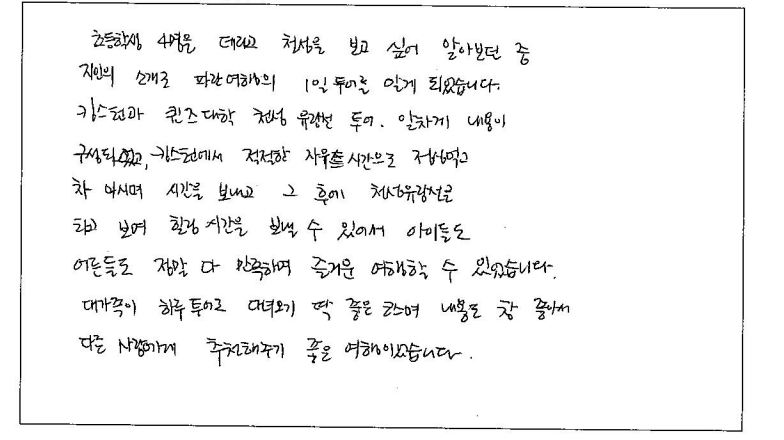 초등학생 4명을 데리고 천섬을 보고 싶어 알아보던 중
지인의 소개로 파란여행의 1일 투어를 알게 되었습니다.
킹스턴과 퀸즈대학 천섬 유람선 투어. 알차게 내용이
구성되 있고, 킹스턴에서 적적한 자유 시간으로 점심먹고
차 마시며 시간을 보내고 그 후에 천섬유람선을
타고 보며 힐링 시간을 보낼 수 있어서 아이들도
어른들도 정말 다 만족하며 즐거운 여행할 수 있었습니다.
대가족이 하루 투어로 다녀오기 딱 좋은 코스며 내용도 참 좋아서
다른 사람에게 추천해주기 좋은 여행이었습니다.